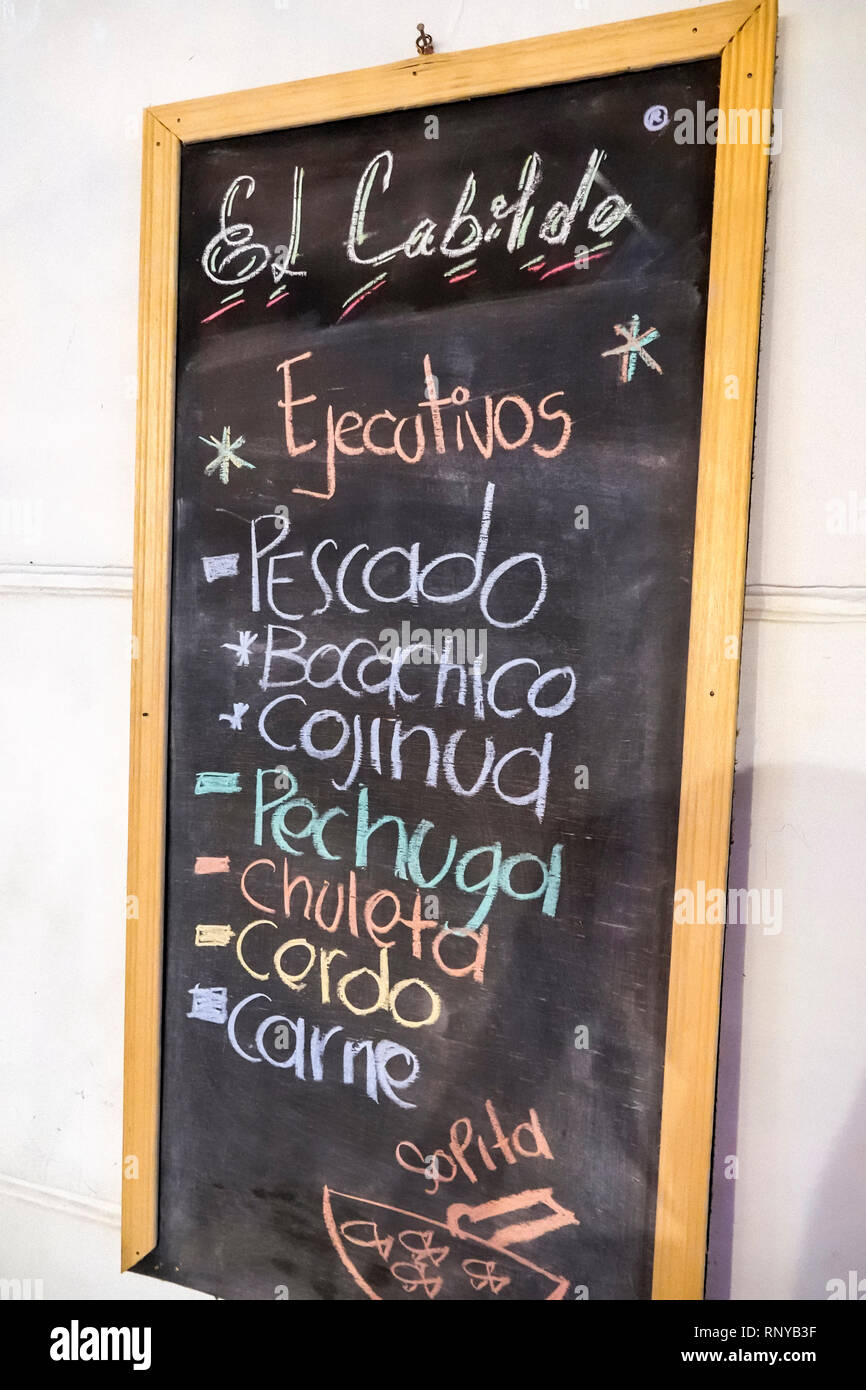 El Cabildo
Ejecutivos
- Pescado
* Bocachico
* Cojinua
- Pechuga
- Chuleta
- Cerdo
- Carne
Sopita
alamy
Image ID: RNYB3F
www.alamy.com